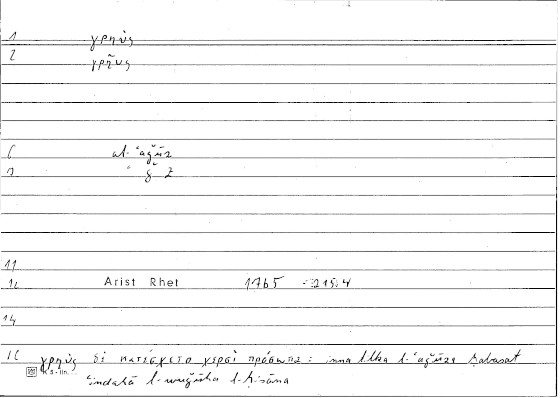 1 γρηύς
2 γρῆυς
6 al-ʿaǧūz
7 ʿ ǧ z
11
12 Arist Rhet 1765 215,4
14
15 γρηὺς δὲ κατέσχετο χερσὶ πρόσωπα: inna l-ʿaǧūza ḥabasat
ʿindahā l-wuǧūha l-ḥisāna